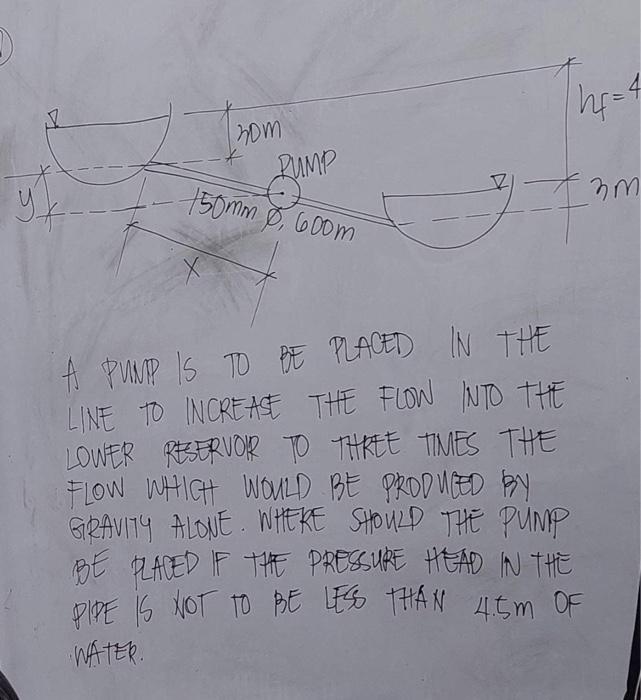 hf=4
30m
PUMP
3m
y
150mm Ø, 600m
X
A PUMP IS TO BE PLACED IN THE
LINE TO INCREASE THE FLOW INTO THE
LOWER RESERVOIR TO THREE TIMES THE
FLOW WHICH WOULD BE PRODUCED BY
GRAVITY ALONE. WHERE SHOULD THE PUMP
BE PLACED IF THE PRESSURE HEAD IN THE
PIPE IS NOT TO BE LESS THAN 4.5m OF
WATER.